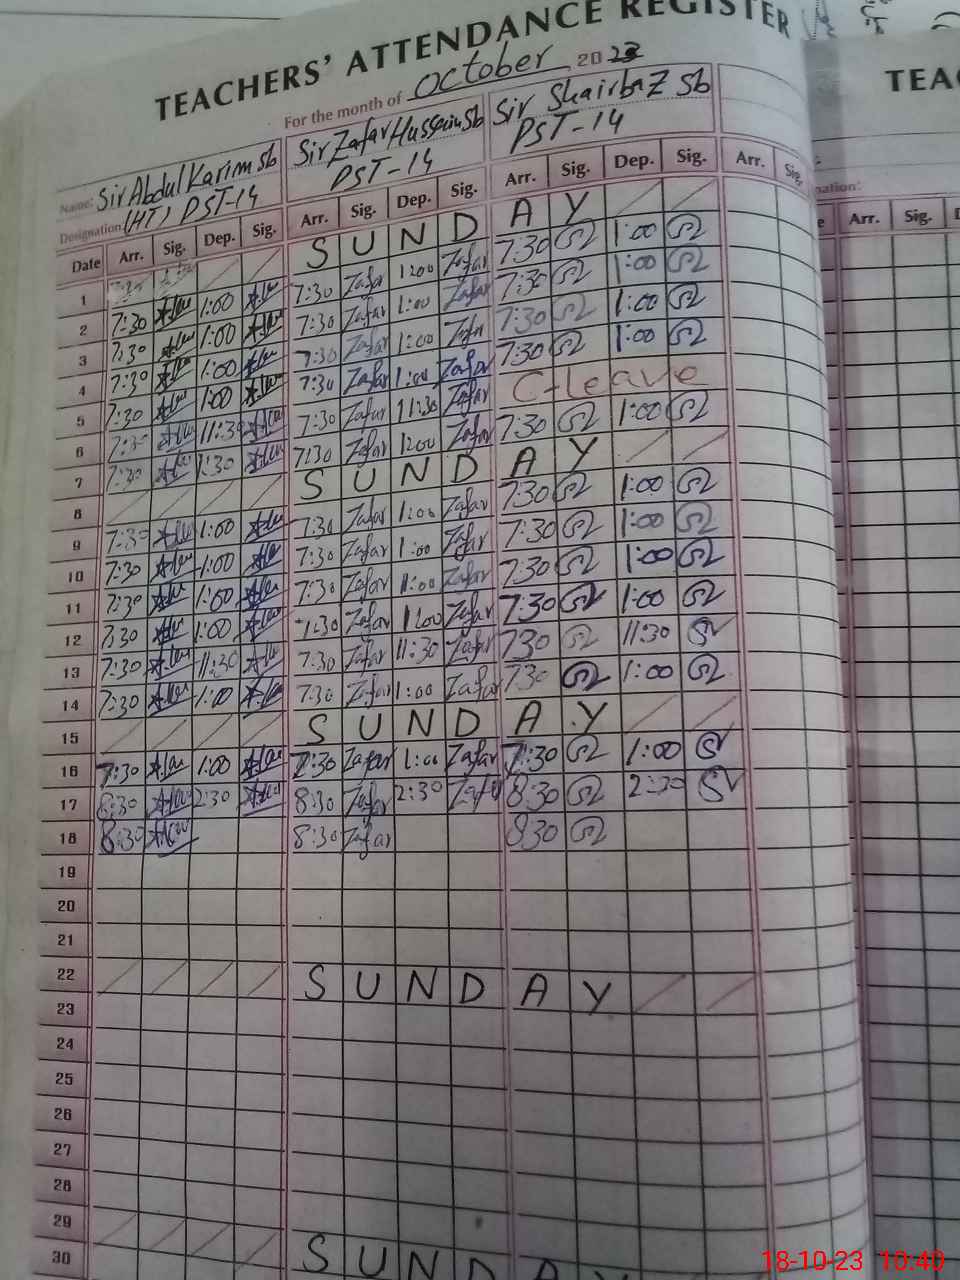 TEACHERS' ATTENDANCE REGISTER
For the month of October 2023
Name: Sir Abdul Karim Sb Sir Zafar Hussain Sb Sir Shairbaz Sb
Designation: (HT) PST-14 PST-14 PST-14
Date Arr. Sig. Dep. Sig. Arr. Sig. Dep. Sig. Arr. Sig. Dep. Sig. Arr. Sig.
1 S U N D A Y
2 7:30 1:00 7:30 Zafar 1:00 Zafar 7:30 1:00
3 7:30 1:00 7:30 Zafar 1:00 Zafar 7:30 1:00
4 7:30 1:00 7:30 Zafar 1:00 Zafar 7:30 1:00
5 7:30 1:00 7:30 Zafar 1:00 Zafar 7:30 1:00
6 7:30 11:30 7:30 Zafar 11:30 Zafar C-leave
7 7:30 1:30 7:30 Zafar 1:00 Zafar 7:30 1:00
8 S U N D A Y
9 7:30 1:00 7:30 Zafar 1:00 Zafar 7:30 1:00
10 7:30 1:00 7:30 Zafar 1:00 Zafar 7:30 1:00
11 7:30 1:00 7:30 Zafar 1:00 Zafar 7:30 1:00
12 7:30 1:00 7:30 Zafar 1:00 Zafar 7:30 1:00
13 7:30 11:30 7:30 Zafar 11:30 Zafar 7:30 11:30
14 7:30 1:00 7:30 Zafar 1:00 Zafar 7:30 1:00
15 S U N D A Y
16 7:30 1:00 7:30 Zafar 1:00 Zafar 7:30 1:00
17 8:30 2:30 8:30 Zafar 2:30 Zafar 8:30 2:30
18 8:30 8:30 Zafar 8:30
19
20
21
22 S U N D A Y
23
24
25
26
27
28
29
30 S U N D A Y
TEA
Arr. Sig.
18-10-23 10:40